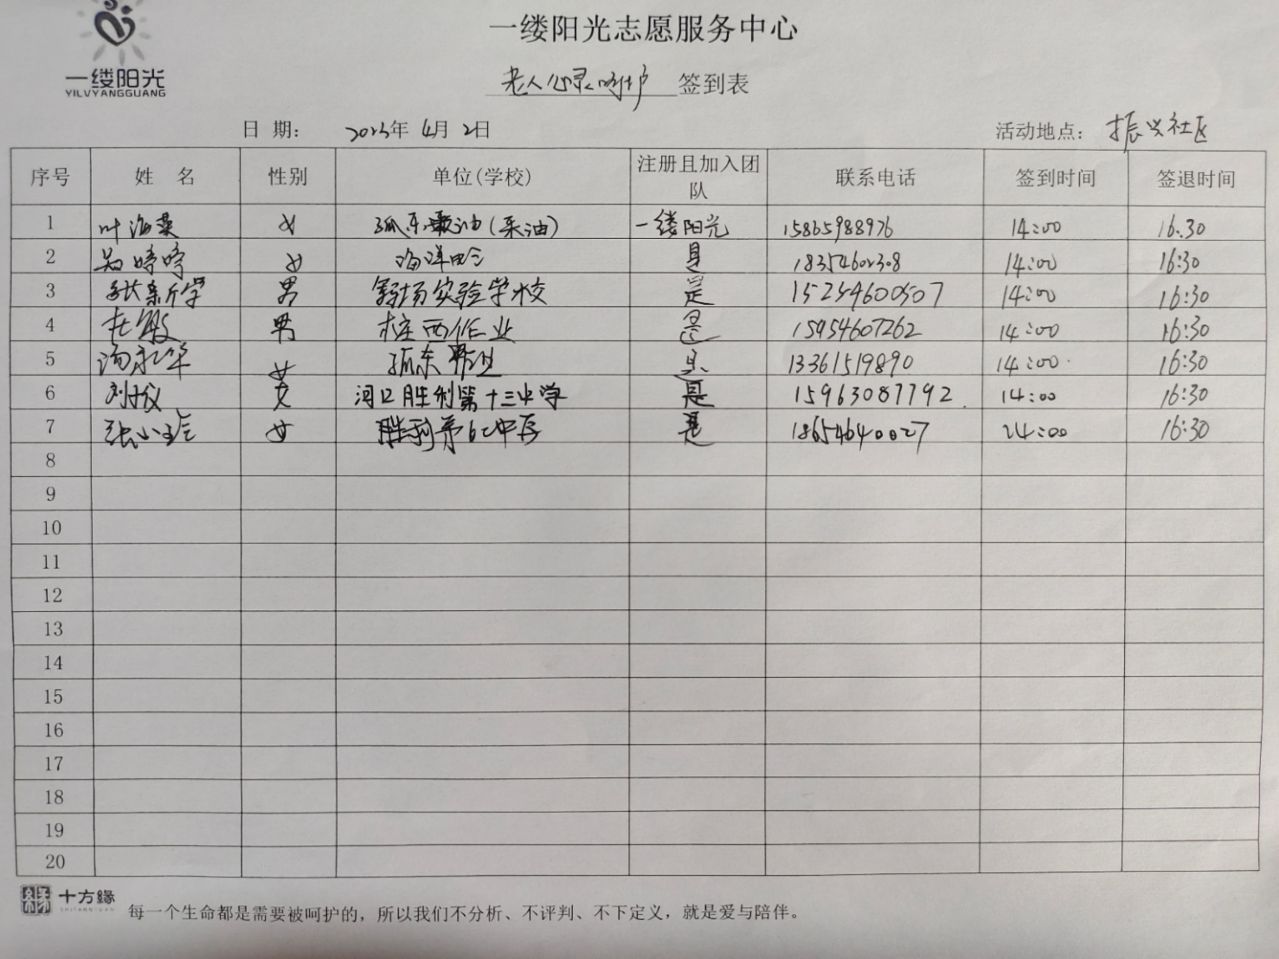 一缕阳光
YILVYANGGUANG
一缕阳光志愿服务中心
老人心灵呵护 签到表
日 期： 2023年 4月 2日 活动地点： 振兴社区
序号 姓 名 性别 单位(学校) 注册且加入团队 联系电话 签到时间 签退时间
1 叶海燕 女 孤东采油(采油) 一缕阳光 15865988976 14:00 16:30
2 吴婷婷 女 海洋 是 18354602308 14:00 16:30
3 张新学 男 实验学校 是 15254600507 14:00 16:30
4 杜敏 男 桩西作业 是 15954607262 14:00 16:30
5 汤永华 女 孤东 是 13361519890 14:00 16:30
6 刘 女 河口胜利第十三中学 是 15963087792 14:00 16:30
7 张小 女 胜利第 是 18654640027 14:00 16:30
8
9
10
11
12
13
14
15
16
17
18
19
20
十方緣
每一个生命都是需要被呵护的，所以我们不分析、不评判、不下定义，就是爱与陪伴。